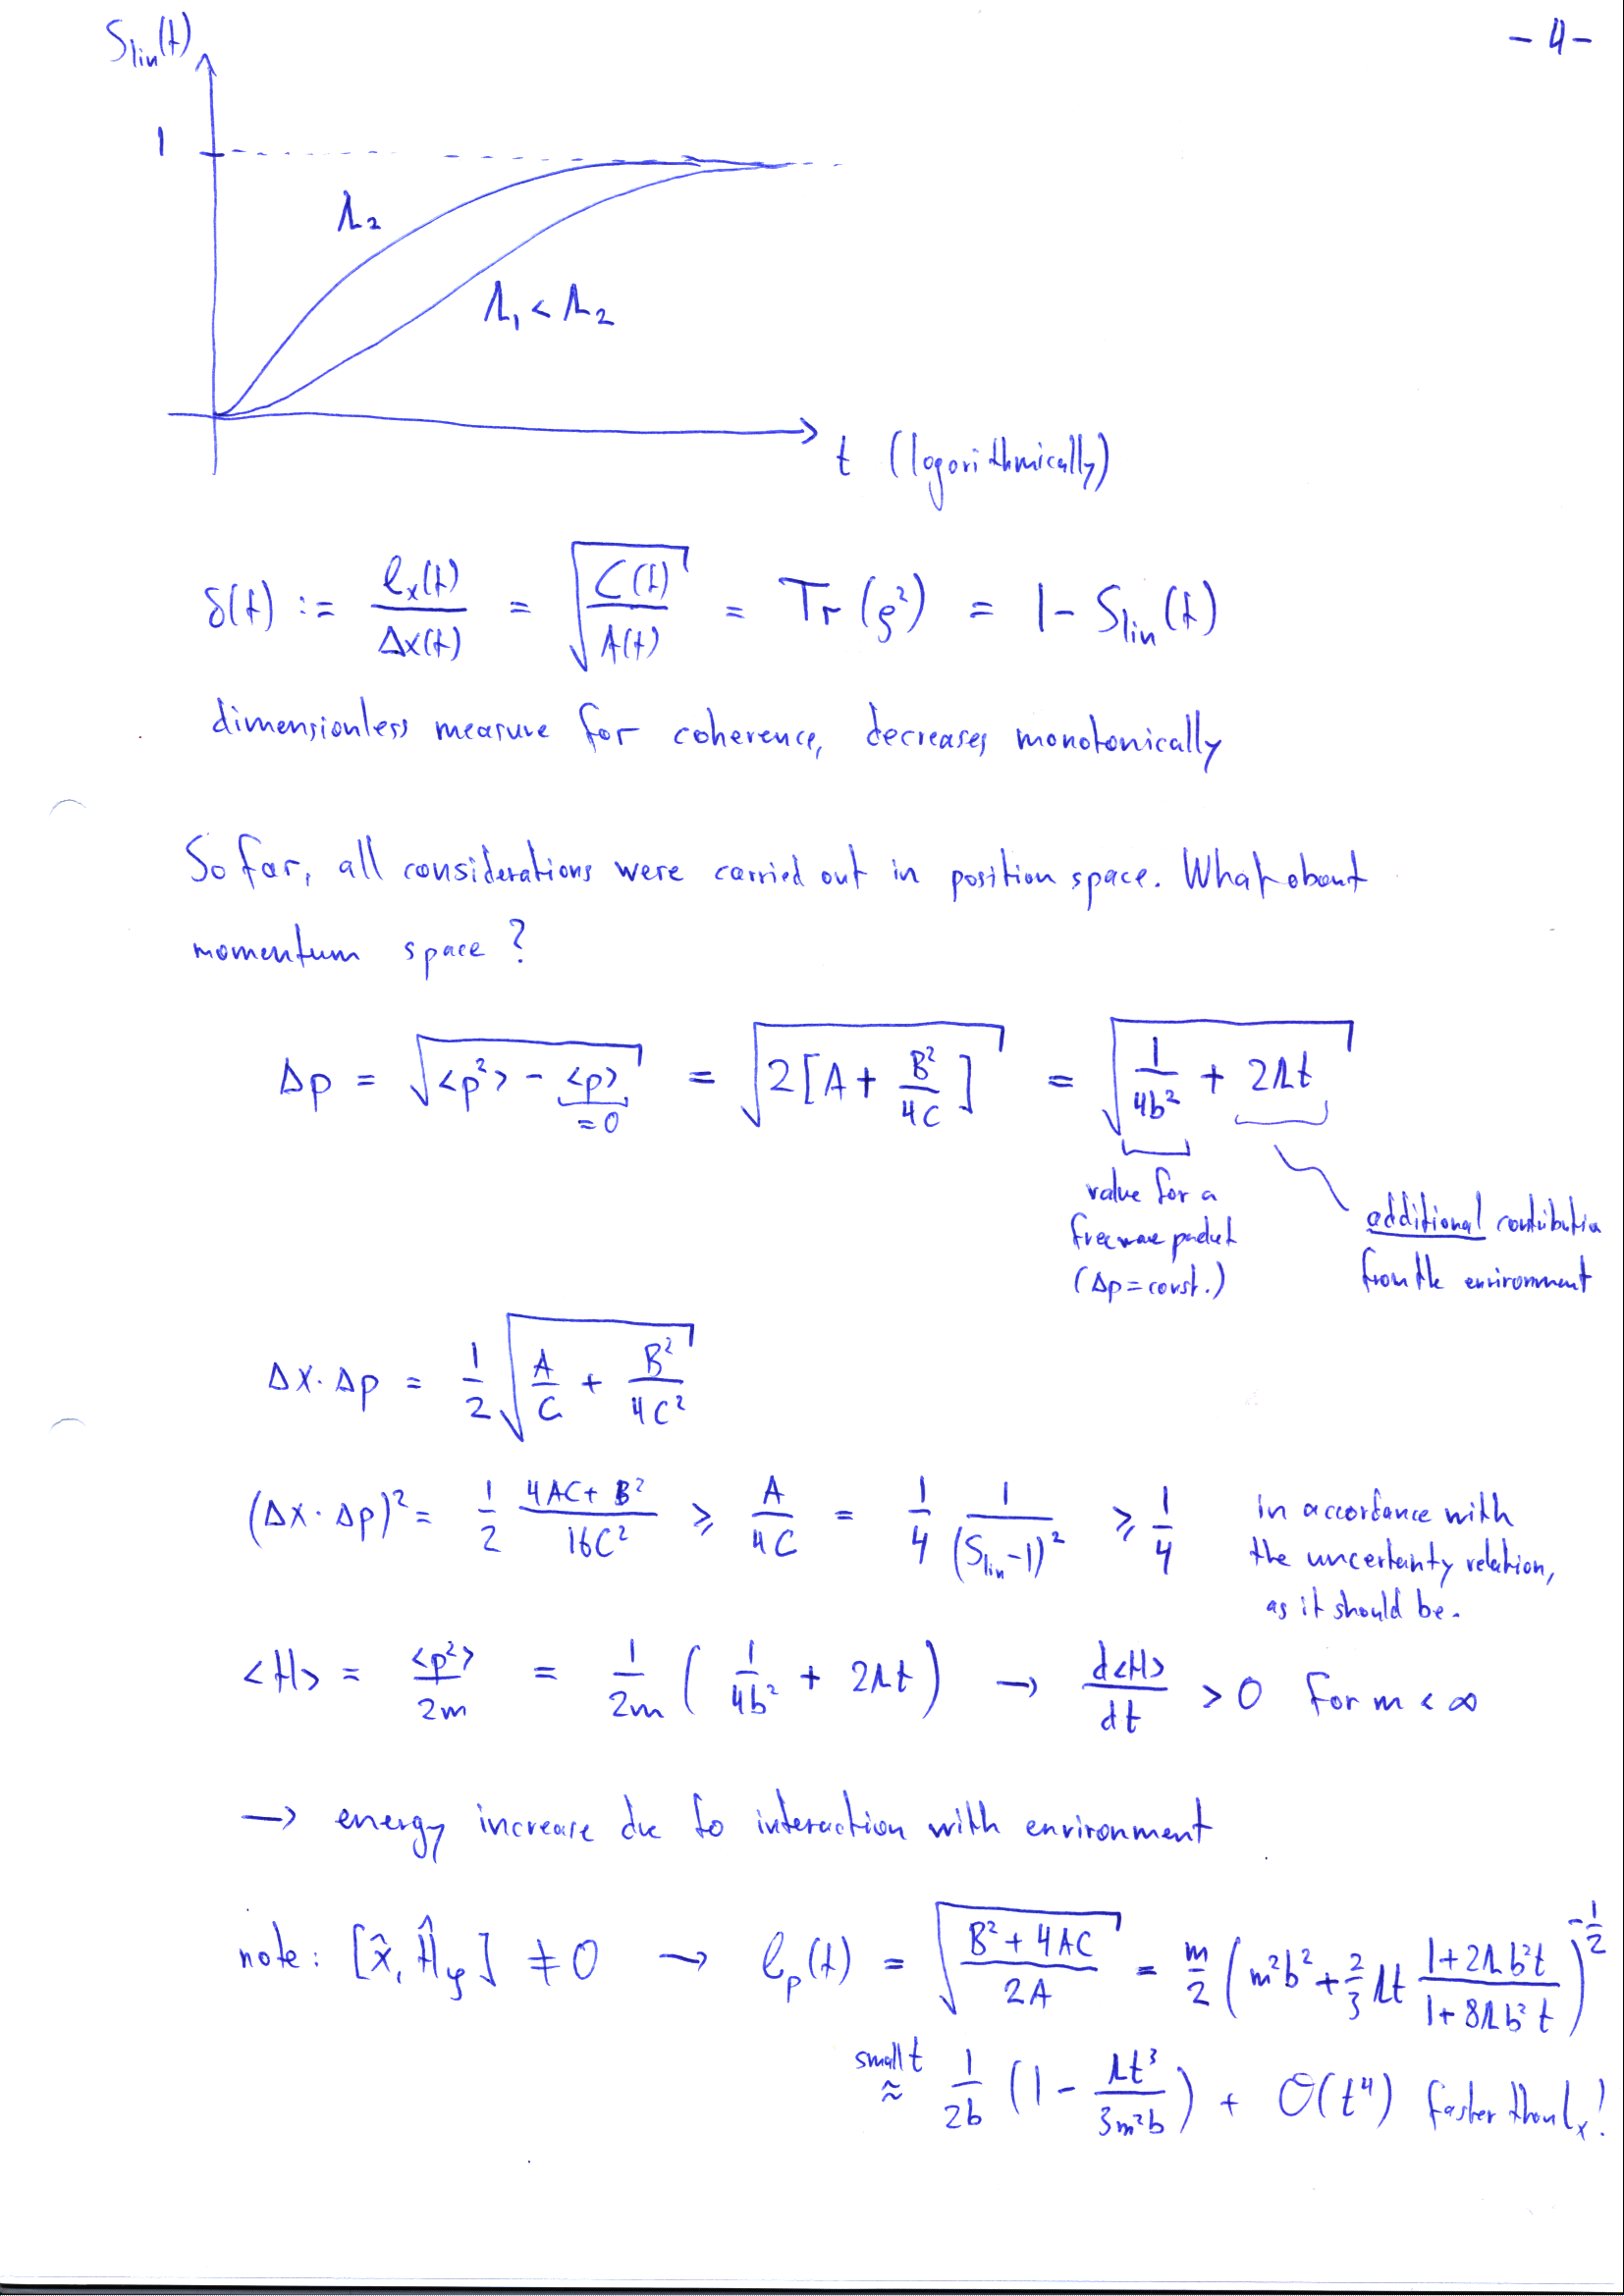 - 4 -
S_lin(t)
1
Λ₂
Λ₁ < Λ₂
t (logarithmically)
δ(t) := l_x(t)/Δx(t) = √(C(t)/A(t)) = Tr(ρ²) = 1 - S_lin(t)
dimensionless measure for coherence, decreases monotonically
So far, all considerations were carried out in position space. What about
momentum space?
Δp = √(<p²> - <p>) = √(2[A + B²/4C]) = √(1/4b² + 2Λt)
= 0
value for a
free wave packet
(Δp = const.)
additional contributio
from the environment
Δx · Δp = 1/2 √(A/C + B²/4C²)
(Δx · Δp)² = 1/2 (4AC + B²)/16C² ⩾ A/4C = 1/4 1/(S_lin - 1)² ⩾ 1/4
in accordance with
the uncertainty relation,
as it should be.
<H> = <p²>/2m = 1/2m (1/4b² + 2Λt) → d<H>/dt > 0 for m < ∞
→ energy increase due to interaction with environment
note: [x̂, Ĥ_φ] ≠ 0 → l_p(t) = √((B² + 4AC)/2A) = m/2 (m²b² + 2/3 Λt (1 + 2Λb²t)/(1 + 8Λb²t))^(-1/2)
small t ≈ 1/2b (1 - Λt³/3m²b) + O(t⁴) faster than l_x!